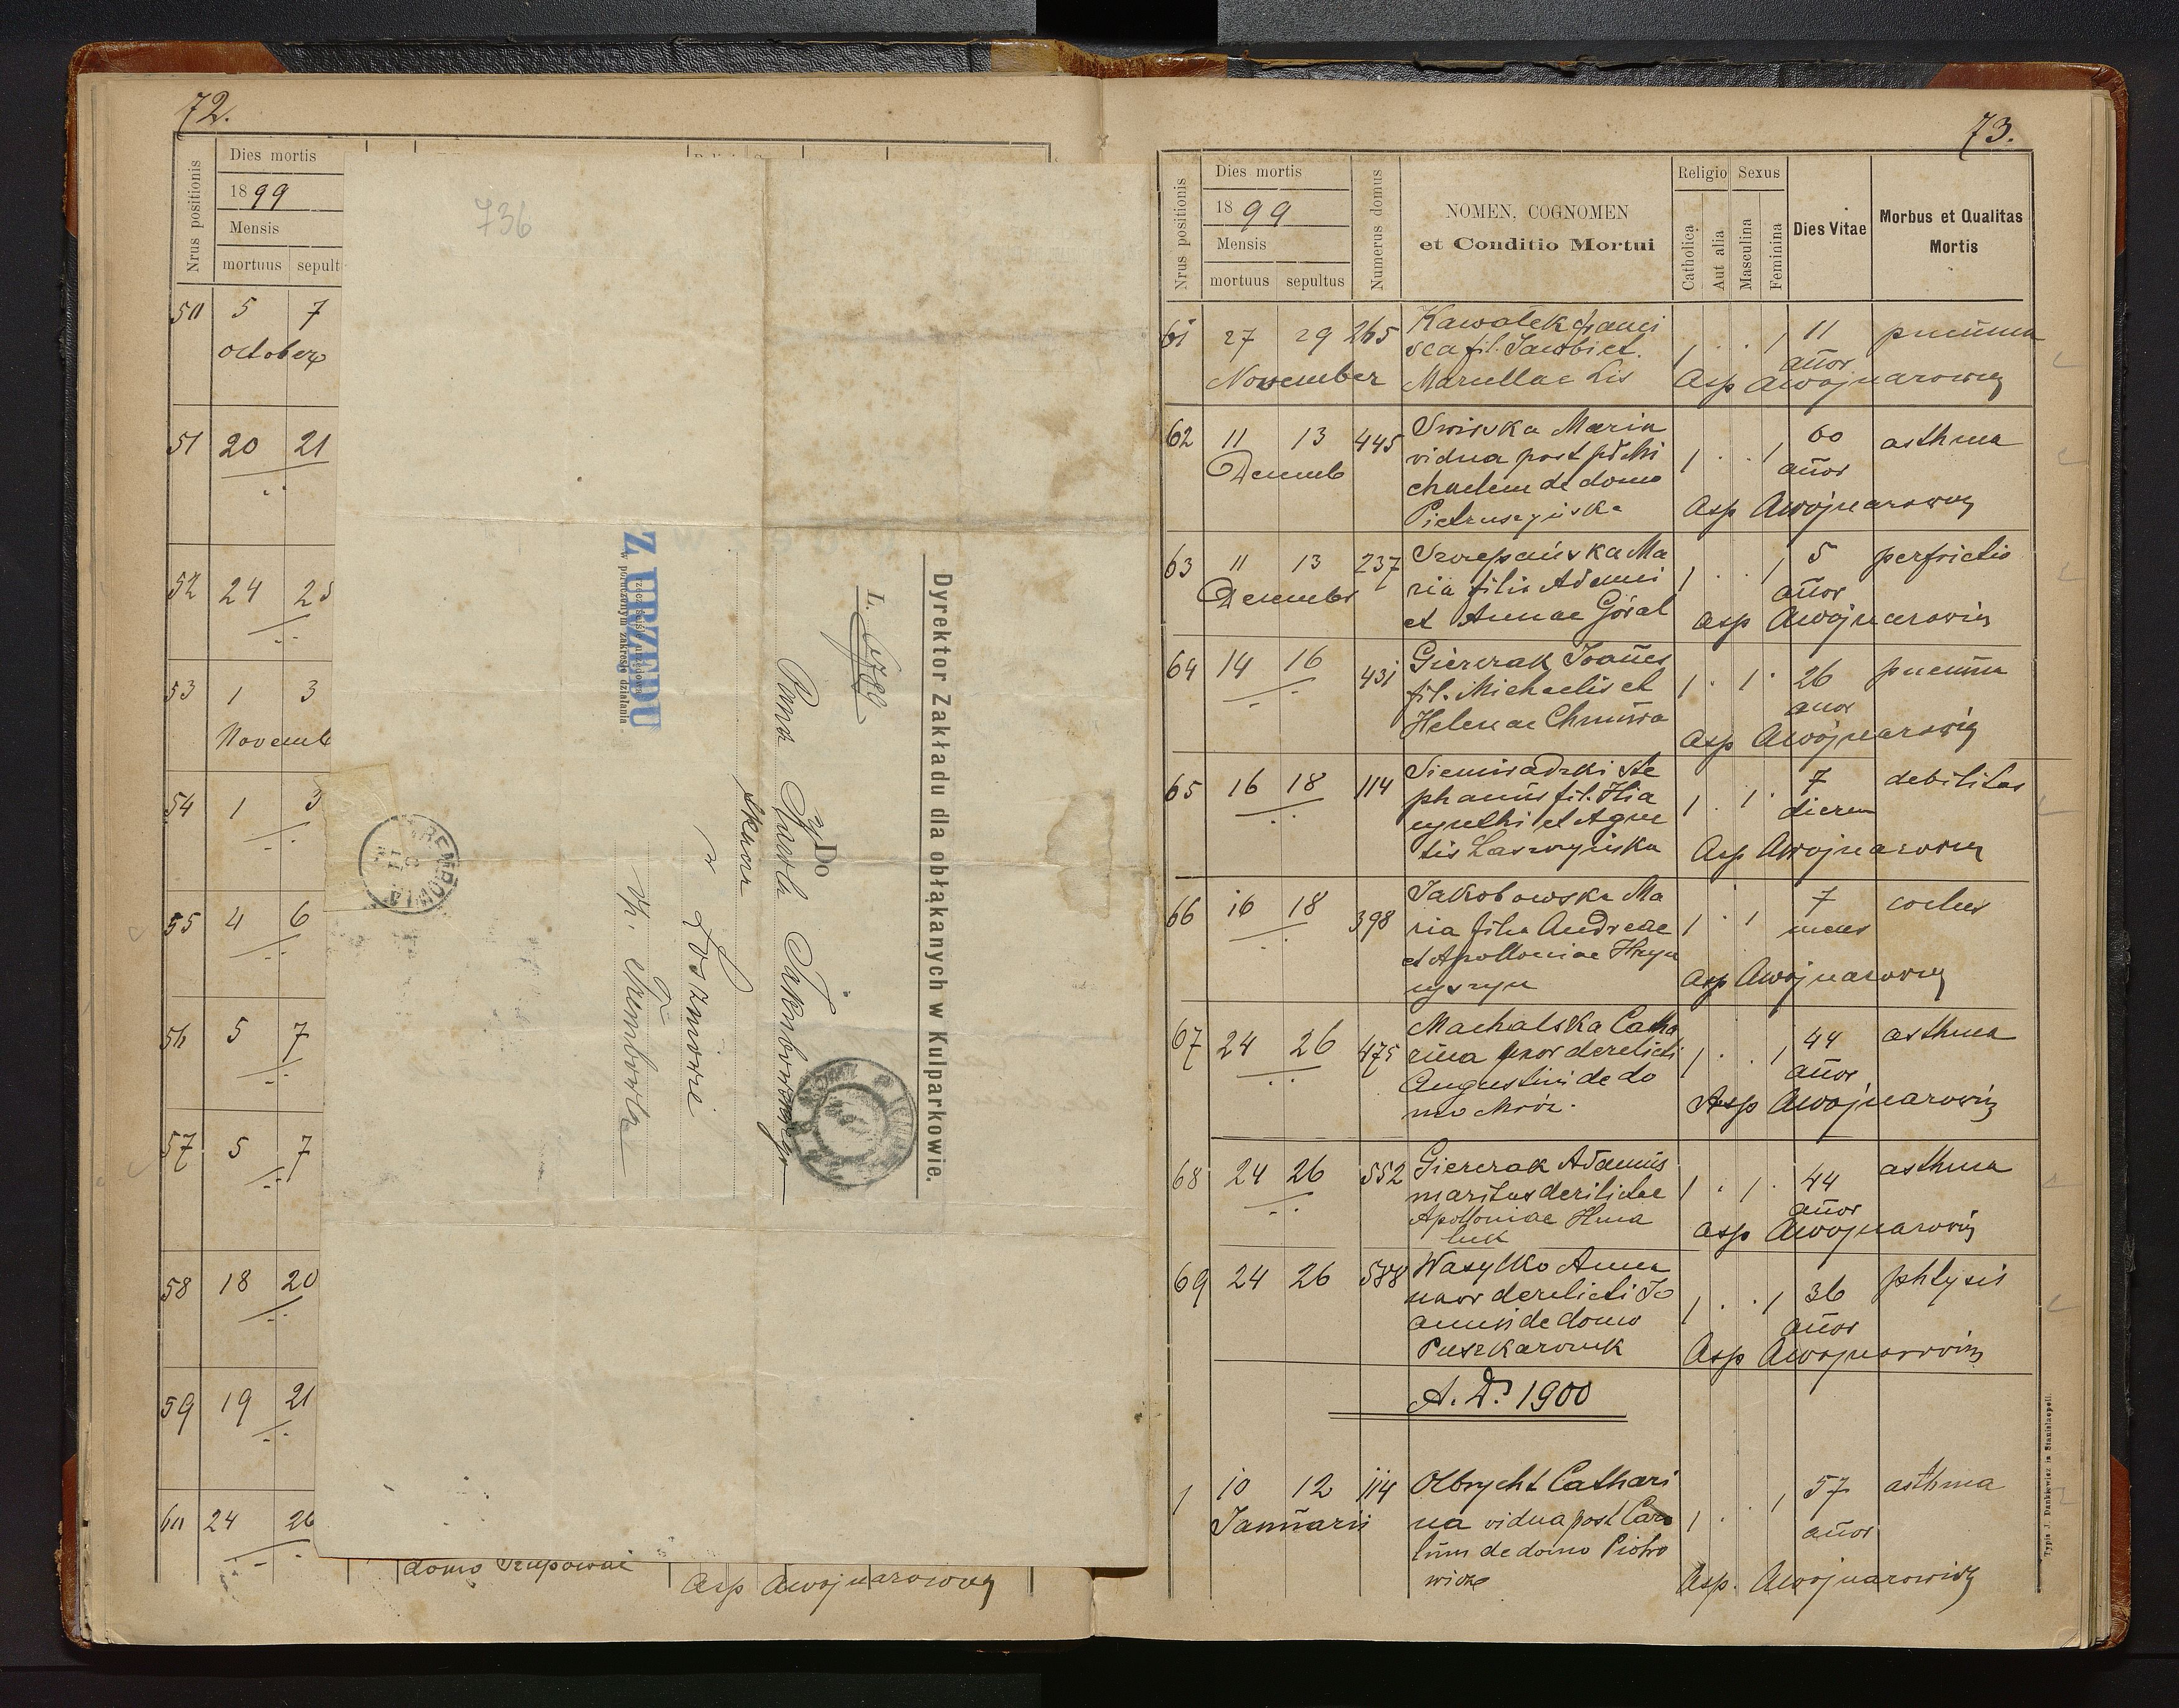 72.
Nrus positionis
Dies mortis
1899
Mensis
mortuus sepult
50 5 7
october
51 20 21
52 24 25
53 1 3
Novemb
54 1 3
55 4 6
56 5 7
57 5 7
58 18 20
59 19 21
60 24 26
domo
Asp Awojnarowicz
736
Dyrektor Zakładu dla obłąkanych w Kulparkowie.
L.
Do
Pana Pawła Jakubowskiego
w Łoszniowie
Trembowla
Z URZĘDU
w poruczonym zakresie działania.
TREMBOWLA
73.
Nrus positionis
Dies mortis
1899
Mensis
mortuus sepultus
Numerus domus
NOMEN, COGNOMEN
et Conditio Mortui
Religio
Catholica
Aut alia
Sexus
Masculina
Feminina
Dies Vitae
Morbus et Qualitas
Mortis
61 27 29 265 Kawałek Franci 1 . . 1 11 pneūma
sca fil. Jacobi et
November Marcellae Lis añor
Asp Awojnarowicz
62 11 13 445 Maria 1 . . 1 60 asthma
Decemb vidua post p Mi añor
chaelem de domo
Pietruszyńska Asp Awojnarowicz
63 11 13 237 Szczepańska Ma 1 . . 1 5 perfrictio
December ria filia Adami añor
et Annae Góral Asp Awojnarowicz
64 14 16 431 Gierczak Joañes 1 . 1 . 26 pneūma
fil. Michaelis et anor
Helenae Asp Awojnarowicz
65 16 18 114 Siemiradzki Ste 1 . 1 . 7 debilitas
phanus fil. Hia dierum
cynthi et Agne
tis Laszczyńska Asp Awojnarowicz
66 16 18 398 Jakobowska Ma 1 . 1 7
ria filia Andreae
et Apolloniae Hryn
Asp Awojnarowicz
67 24 26 475 Machalska Catha 1 . . 1 44 asthma
rina uxor derelicti añor
Augustini de do
mo Mróz. Asp Awojnarowicz
68 24 26 552 Gierczak Adamus 1 . 1 . 44 asthma
maritus derelictae añor
Apolloniae Hna
luk Asp Awojnarowicz
69 24 26 588 Wasylko Anna 1 . . 1 36 phtysis
uxor derelicti Jo añor
annis de domo
Puszkarczuk Asp Awojnarowicz
A. D. 1900
1 10 12 114 Olbrycht Cathari 1 . . 1 57 asthma
Januarii na vidua post Caro añor
lum de domo Piotro
wicz Asp. Awojnarowicz
Typis J. Dankiewicz in Stanislaopoli.